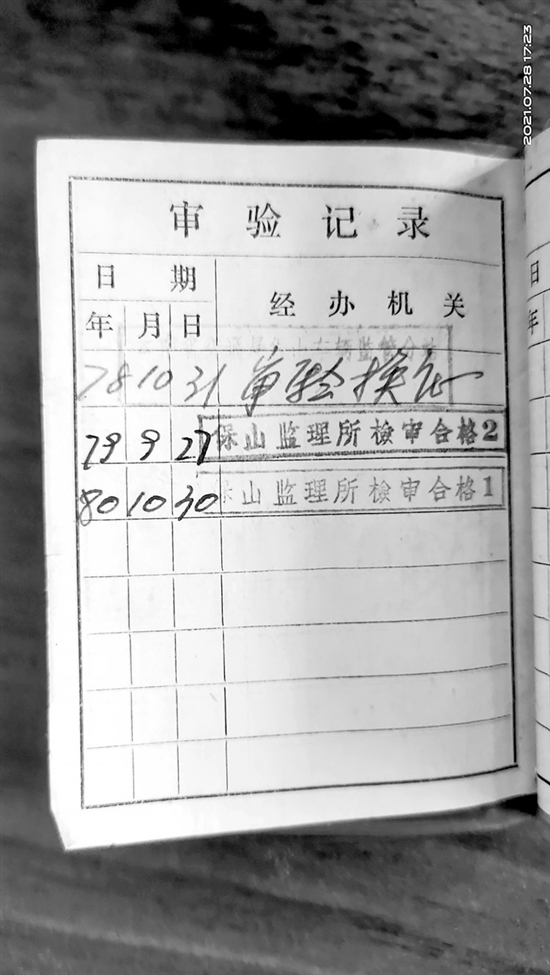 2021.07.28 17:23
审验记录
日期
经办机关
年月日
78 10 31 审验换证
79 9 27 保山监理所検审合格2
80 10 30 保山监理所検审合格1
日
年